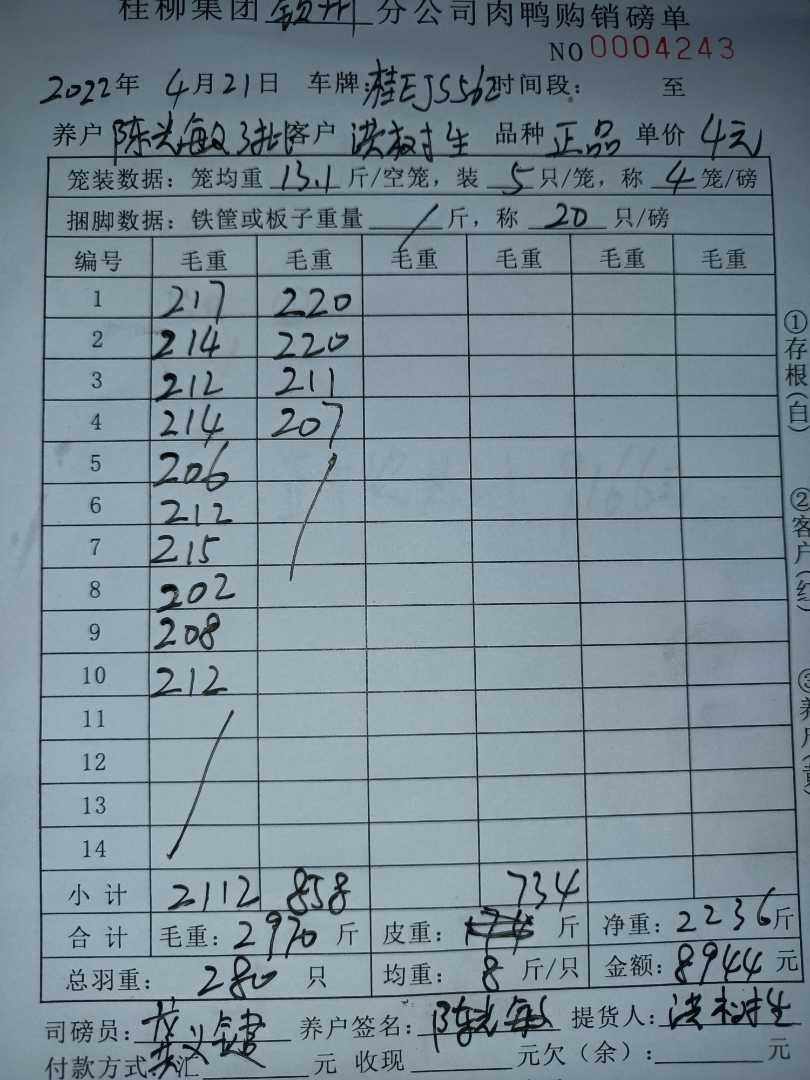 桂柳集团 钦州 分公司肉鸭购销磅单
NO 0004243
2022年 4月21日 车牌:桂EJS562时间段: 至
养户 陈光敏 3批 客户 洪树生 品种 正品 单价 4元
笼装数据：笼均重 13.1 斤/空笼，装 5 只/笼，称 4 笼/磅
捆脚数据：铁筐或板子重量 / 斤，称 20 只/磅
编号 毛重 毛重 毛重 毛重 毛重 毛重
1 217 220
2 214 220
3 212 211
4 214 207
5 206
6 212
7 215
8 202
9 208
10 212
11
12
13
14
小计 2112 858 734
合计 毛重：2970 斤 皮重： 斤 净重：2236斤
总羽重： 280 只 均重： 8 斤/只 金额：8944 元
司磅员： 养户签名：陈光敏 提货人：洪树生
付款方式：汇 元 收现 元欠（余）: 元
①存根(白)
②客户(红)
③养户(黄)